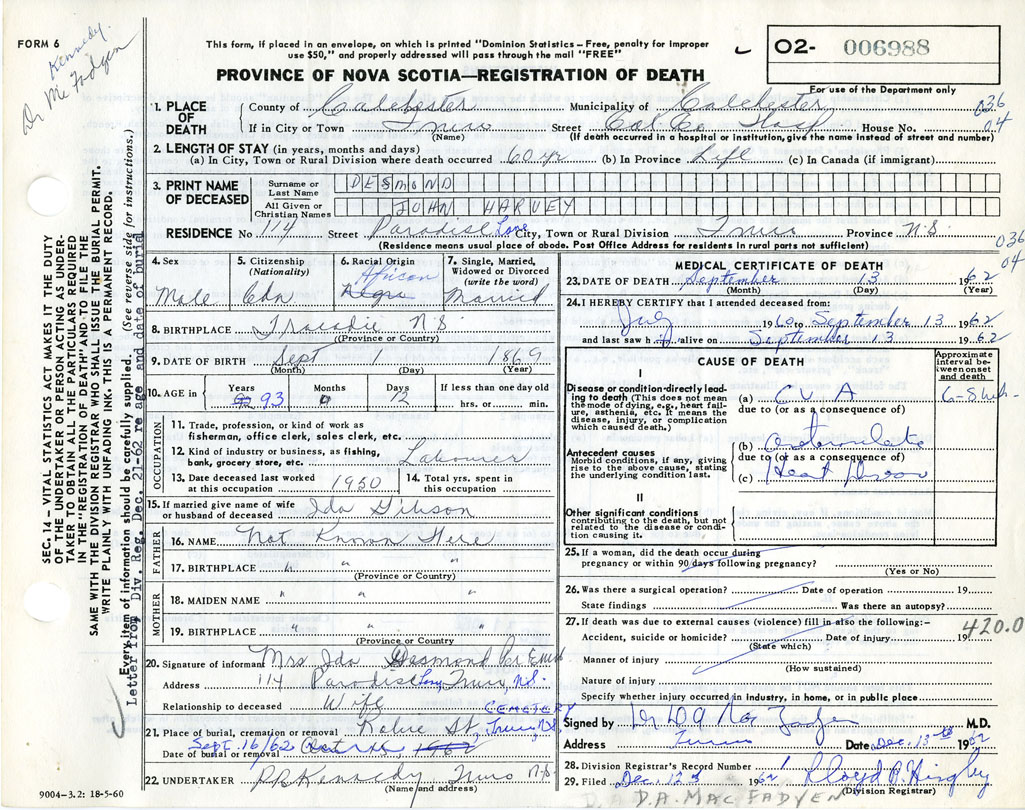 FORM 6
Kennedy.
Dr Mc Fadyen
This form, if placed in an envelope, on which is printed "Dominion Statistics – Free, penalty for improper
use $50," and properly addressed will pass through the mail "FREE"
O2- 006988
PROVINCE OF NOVA SCOTIA—REGISTRATION OF DEATH
For use of the Department only
036
04
1. PLACE OF DEATH
County of Colchester Municipality of Colchester
If in City or Town Truro Street Col. Co. Hosp House No.
(Name) (If death occurred in a hospital or institution, give the name instead of street and number)
2. LENGTH OF STAY (in years, months and days)
(a) In City, Town or Rural Division where death occurred 60 yr (b) In Province Life (c) In Canada (if immigrant)
3. PRINT NAME OF DECEASED
Surname or Last Name DESMOND
All Given or Christian Names JOHN HARVEY
RESIDENCE No 114 Street Paradise Lane City, Town or Rural Division Truro Province N.S.
(Residence means usual place of abode. Post Office Address for residents in rural parts not sufficient)
036
04
4. Sex
Male
5. Citizenship
(Nationality)
Cdn
6. Racial Origin
African
Negro
7. Single, Married,
Widowed or Divorced
(write the word)
Married
8. BIRTHPLACE Tracadie N.S
(Province or Country)
9. DATE OF BIRTH Sept 1 1869
(Month) (Day) (Year)
10. AGE in
Years 93
Months 0
Days 12
If less than one day old
hrs. or min.
OCCUPATION
11. Trade, profession, or kind of work as
fisherman, office clerk, sales clerk, etc.
12. Kind of industry or business, as fishing,
bank, grocery store, etc. Labourer
13. Date deceased last worked
at this occupation 1950
14. Total yrs. spent in
this occupation
15. If married give name of wife
or husband of deceased Ida Gibson
FATHER
16. NAME Not Known Here
17. BIRTHPLACE " " "
(Province or Country)
MOTHER
18. MAIDEN NAME " " "
19. BIRTHPLACE " " "
(Province or Country)
20. Signature of informant Mrs Ida Desmond Per
Address 114 Paradise Lane, Truro, N.S.
Relationship to deceased Wife
CEMETERY
21. Place of burial, cremation or removal Robie St. Truro, N.S.
Date of burial or removal Sept. 16/62 1962
22. UNDERTAKER Kennedy Truro N.S.
(Name and address)
9004-3.2: 18-5-60
MEDICAL CERTIFICATE OF DEATH
23. DATE OF DEATH September 13 1962
(Month) (Day) (Year)
24. I HEREBY CERTIFY that I attended deceased from:
July 1960 to September 13 1962
and last saw h alive on September 13 1962
CAUSE OF DEATH
Approximate
interval be-
tween onset
and death
I
Disease or condition directly lead-
ing to death (This does not mean
the mode of dying, e.g., heart failure,
asthenia, etc. It means the
disease, injury, or complication
which caused death.)
(a) C V A 6-8 hrs.
due to (or as a consequence of)
Antecedent causes
Morbid conditions, if any, giving
rise to the above cause, stating
the underlying condition last.
(b)
due to (or as a consequence of)
(c) Heart Disease
II
Other significant conditions
contributing to the death, but not
related to the disease or condi-
tion causing it.
25. If a woman, did the death occur during
pregnancy or within 90 days following pregnancy?
(Yes or No)
26. Was there a surgical operation? Date of operation 19
State findings Was there an autopsy?
27. If death was due to external causes (violence) fill in also the following:-
420.0
Accident, suicide or homicide? Date of injury 19
(State which)
Manner of injury
(How sustained)
Nature of injury
Specify whether injury occurred in industry, in home, or in public place
Signed by Dr D A Mac Fadyen M.D.
Address Truro Date Dec. 13th 1962
28. Division Registrar's Record Number
29. Filed Dec. 1962 Lloyd P. Hingley
(Division Registrar)
D.A. MAC FADYEN
SEC. 14 – VITAL STATISTICS ACT MAKES IT THE DUTY
OF THE UNDERTAKER OR PERSON ACTING AS UNDER-
TAKER TO OBTAIN ALL THE PARTICULARS REQUIRED
IN THE "REGISTRATION OF DEATH" AND TO FILE THE
SAME WITH THE DIVISION REGISTRAR WHO SHALL ISSUE THE BURIAL PERMIT.
WRITE PLAINLY WITH UNFADING INK. THIS IS A PERMANENT RECORD.
Every item of information should be carefully supplied. (See reverse side for instructions.)
Letter from Div. Reg. Dec. 21-62 re age and date of burial